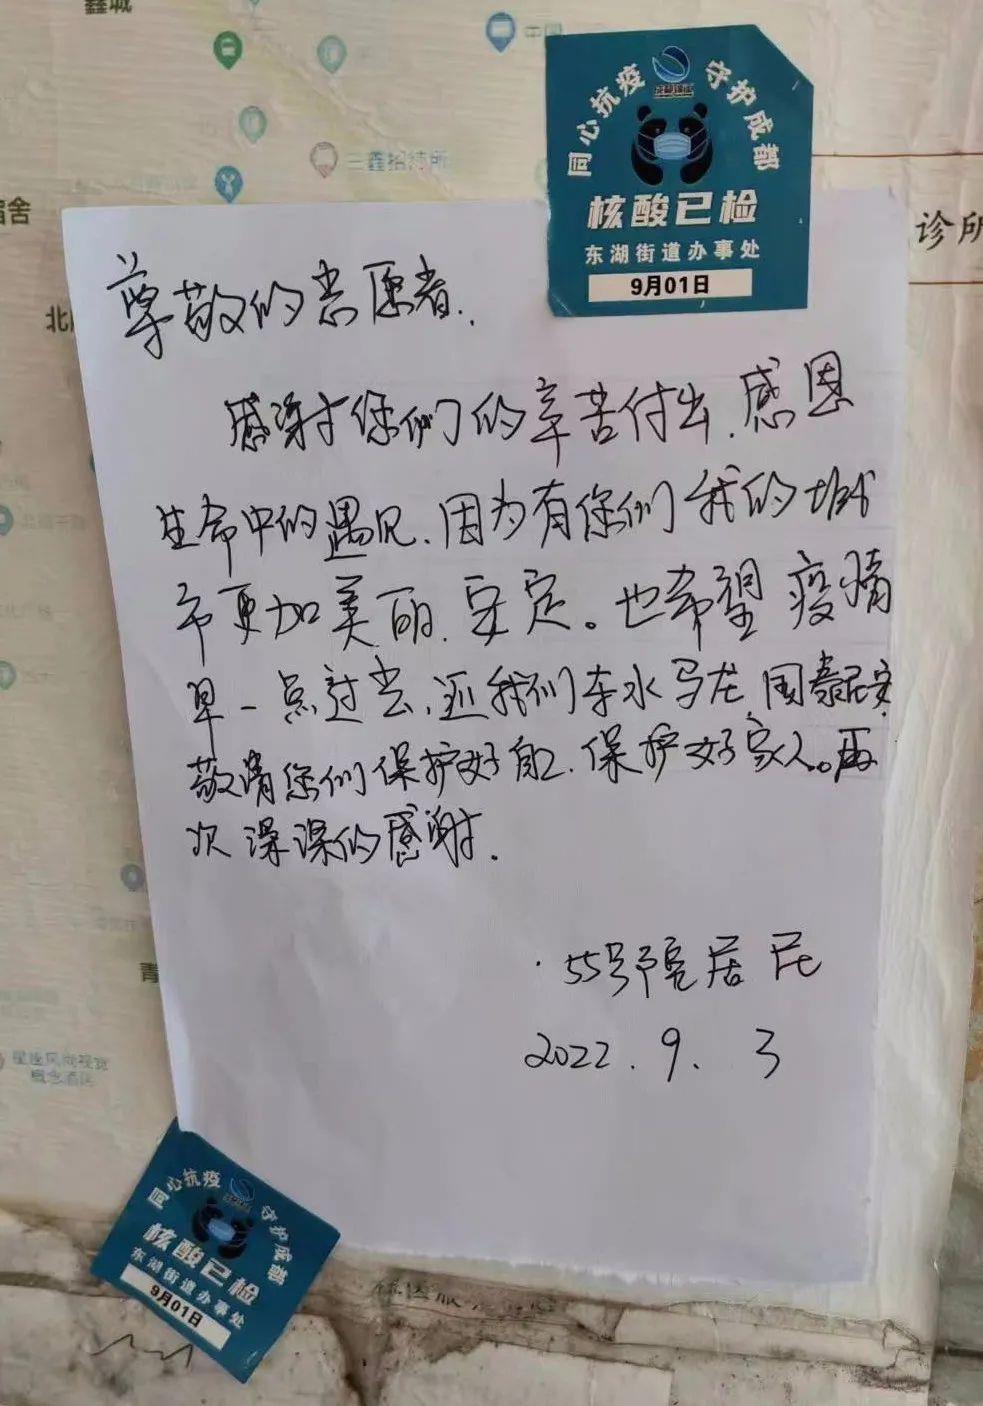 鑫城
中国
三鑫招待所
宿舍
诊所
同心抗疫 守护成都
核酸已检
东湖街道办事处
9月01日
尊敬的志愿者.
感谢您们的辛苦付出.感恩
生命中的遇见.因为有您们我的城
市更加美丽.安定。也希望疫情
早一点过去.还我们车水马龙.国泰民安
敬请您们保护好自己.保护好家人。再
次深深的感谢.
55号院居民
2022.9.3
星座风尚视觉
概念酒店
同心抗疫 守护成都
核酸已检
东湖街道办事处
9月01日